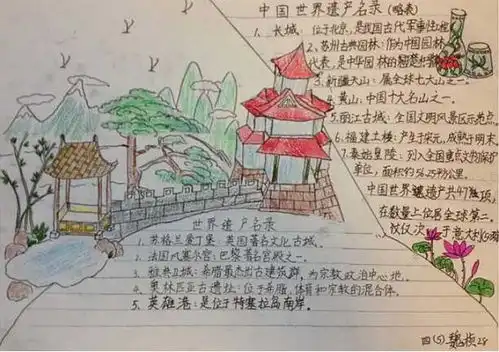 中国世界遗产名录（略表）
1、长城：位于北京，是我国古代军事性工程
2、苏州古典园林：作为中国园林
代表，是中华园林的翘楚
3、新疆天山：属全球七大山之一。
4、黄山：中国十大名山之一。
5、丽江古城：全国文明风景区示范点。
6、福建土楼：产生于宋元，成熟于明末。
7、秦始皇陵：列入全国重点文物保护
单位，面积约56.25平方公里。
中国世界遗产共47项，
在数量上位居全球第二，
仅次于意大利
世界遗产名录
1、苏格兰爱丁堡：英国著名文化古城。
2、法国凡塞尔宫：巴黎著名宫殿之一。
3、雅典卫城：希腊最杰出古建筑群，为宗教政治中心地。
4、奥林匹亚古遗址：位于希腊，体育和宗教的混合体。
5、英雄港：是位于特塞拉岛南岸。
四（5）魏桢28